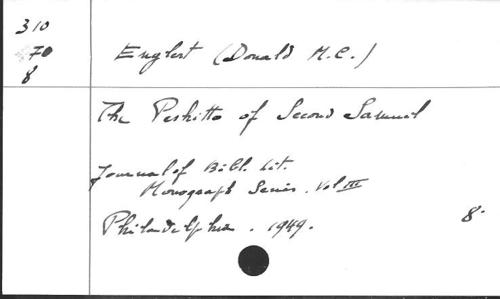 310
70
8
Englert (Donald M.C.)
The Peshitto of Second Samuel
Journal of Bibl. Lit.
Monograph Series. Vol III
Philadelphia. 1949. 8°